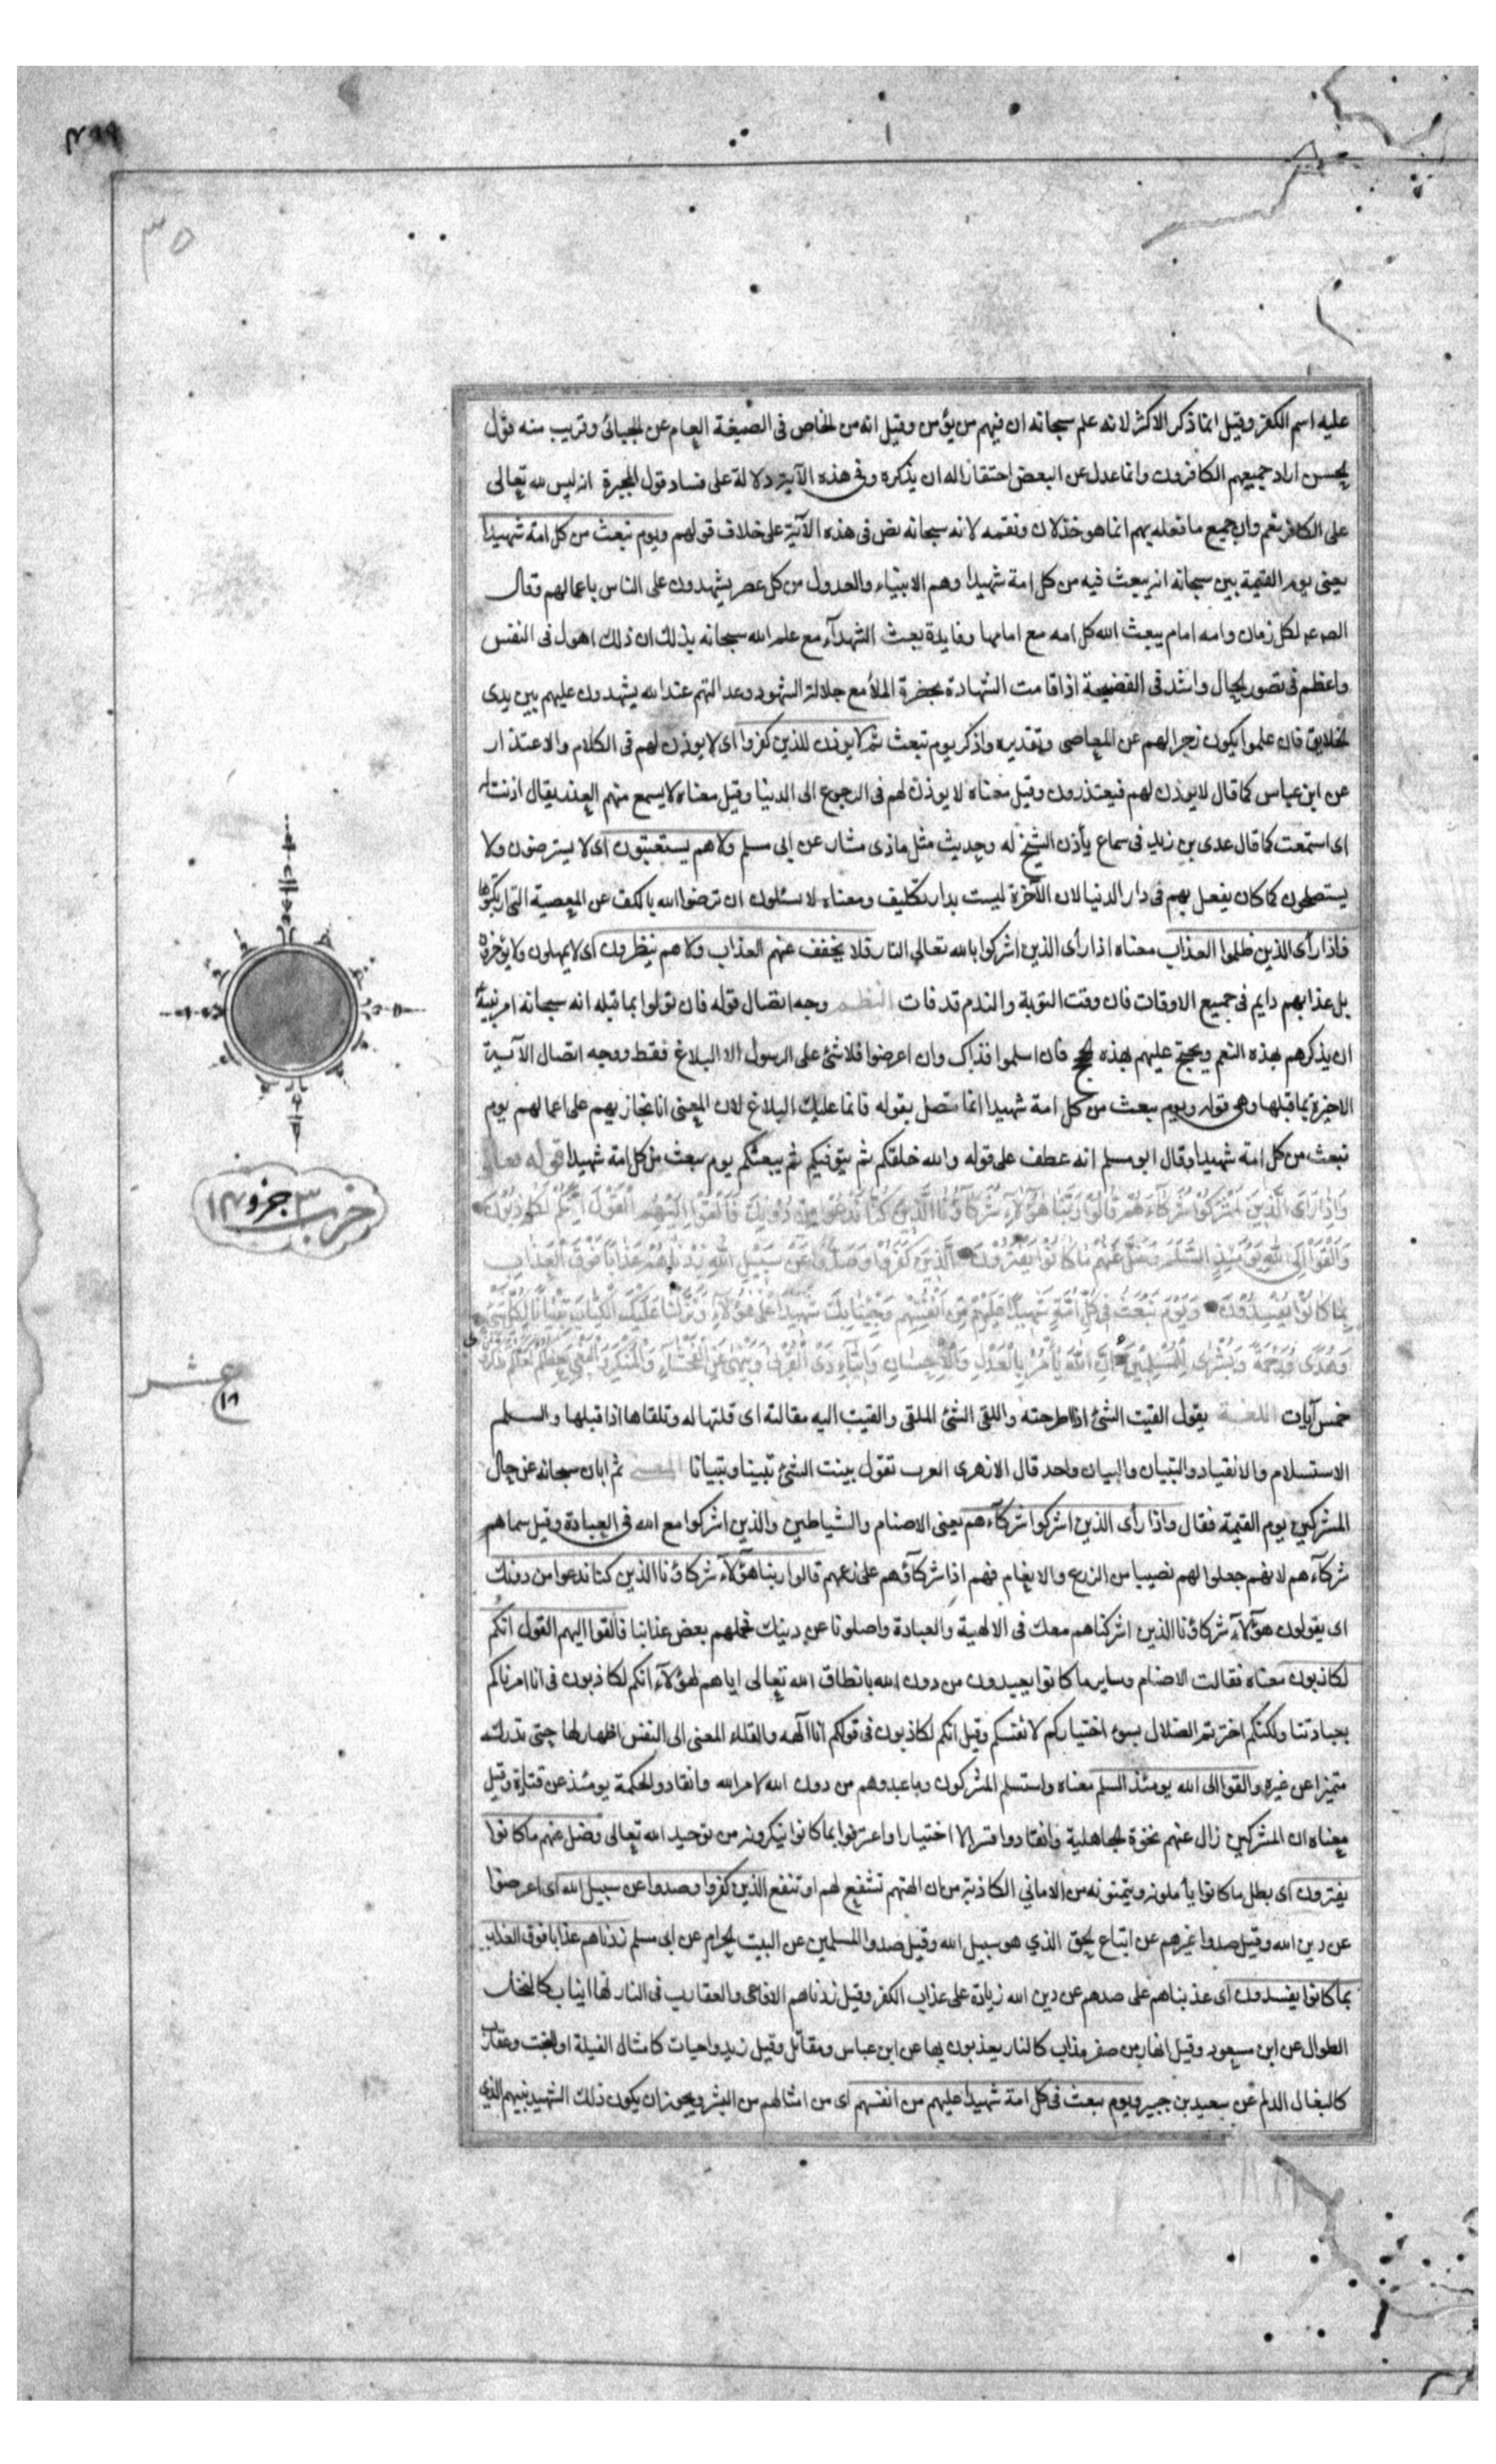 ٣٥
عليه اسم الكفر وقيل انما ذكر الاكثر لانه علم سبحانه ان فيهم من يؤمن وقيل انه من الخاص فى الصيغة العام عن الجبائى وقريب منه قول
الحسن اراد جميعهم الكافرون وانما عدل عن البعض احتقارا له ان يذكره وفى هذه الآية دلالة على فساد قول المجبرة انه ليس لله تعالى
على الكافر نعم وان جميع ما فعله بهم انما هو خذلان ونقمه لانه سبحانه نص فى هذه الآية على خلاف قولهم ويوم نبعث من كل امة شهيدا
يعنى يوم القيمة بين سبحانه انه يبعث فيه من كل امة شهيدا وهم الانبياء والعدول من كل عصر يشهدون على الناس باعمالهم وقال
الص ع لكل زمان وامه امام يبعث الله كل امه مع امامها وفايدة بعث الشهدآء مع علم الله سبحانه بذلك ان ذلك اهول فى النفس
واعظم فى تصور الحال واشد فى الفضيحة اذا قامت الشهادة بحضرة الملأ مع جلالة الشهود وعدالتهم عند الله يشهدون عليهم بين يدى
الخلايق فان علموا يكون زجرا لهم عن المعاصى وتقديره واذكر يوم نبعث ثم لا يوذن للذين كفروا اى لا يوذن لهم فى الكلام والاعتذار
عن ابن عباس كما قال لا يوذن لهم فيعتذرون وقيل معناه لا يوذن لهم فى الرجوع الى الدنيا وقيل معناه لا يسمع منهم العذر يقال اذنت له
اى استمعت كما قال عدى بن زيد فى سماع يأذن الشيخ له وحديث مثل ماذى مشار عن ابى مسلم ولا هم يستعتبون اى لا يسترضون ولا
يستصلحون كما كان يفعل بهم فى دار الدنيا لان الآخرة ليست بدار تكليف ومعناه لا يسئلون ان ترضوا الله بالكف عن المعصية التى ارتكبوها
فاذا رأى الذين ظلموا العذاب معناه اذا رأى الذين اشركوا بالله تعالى النار فلا يخفف عنهم العذاب ولا هم ينظرون اى لا يمهلون ولا يؤخرون
بل عذابهم دايم فى جميع الاوقات فان وقت التوبة والندم قد فات النظم وجه اتصال قوله فان تولوا بما قبله انه سبحانه امر نبيه
ان يذكرهم بهذه النعم ويحتج عليهم بهذه الحجج فان اسلموا فذاك وان اعرضوا فلا شئ على الرسول الا البلاغ فقط ووجه اتصال الآية
الاخيرة بما قبلها وهى قوله ويوم نبعث من كل امة شهيدا انما تتصل بقوله فانما عليك البلاغ لان المعنى انا نجازيهم على اعمالهم يوم
نبعث من كل امة شهيدا وقال ابو مسلم انه عطف على قوله والله خلقكم ثم يتوفيكم ثم يبعثكم يوم يبعث من كل امة شهيدا قوله تعالى
وَاِذَا رَاَى الَّذِينَ اَشْرَكُوا شُرَكَآءَهُمْ قَالُوا رَبَّنَا هٰؤُلَآءِ شُرَكَآؤُنَا الَّذِينَ كُنَّا نَدْعُوا مِنْ دُونِكَ فَاَلْقَوْا اِلَيْهِمُ الْقَوْلَ اِنَّكُمْ لَكَاذِبُونَ
وَاَلْقَوْا اِلَى اللّٰهِ يَوْمَئِذٍ السَّلَمَ وَضَلَّ عَنْهُمْ مَا كَانُوا يَفْتَرُونَ اَلَّذِينَ كَفَرُوا وَصَدُّوا عَنْ سَبِيلِ اللّٰهِ زِدْنَاهُمْ عَذَابًا فَوْقَ الْعَذَابِ
بِمَا كَانُوا يُفْسِدُونَ وَيَوْمَ نَبْعَثُ فِى كُلِّ اُمَّةٍ شَهِيدًا عَلَيْهِمْ مِنْ اَنْفُسِهِمْ وَجِئْنَا بِكَ شَهِيدًا عَلٰى هٰؤُلَآءِ وَنَزَّلْنَا عَلَيْكَ الْكِتَابَ تِبْيَانًا لِكُلِّ شَىْءٍ
وَهُدًى وَرَحْمَةً وَبُشْرٰى لِلْمُسْلِمِينَ اِنَّ اللّٰهَ يَأْمُرُ بِالْعَدْلِ وَالْاِحْسَانِ وَاِيتَآءِ ذِى الْقُرْبٰى وَيَنْهٰى عَنِ الْفَحْشَآءِ وَالْمُنْكَرِ وَالْبَغْىِ يَعِظُكُمْ لَعَلَّكُمْ تَذَكَّرُونَ
خمس آيات اللغة يقول القيت الشئ اذا طرحته واللقى الشئ الملقى والقيت اليه مقالته اى قلتها له وتلقاها اذا قبلها والسلم
الاستسلام والانقياد والتبيان والبيان واحد قال الازهرى العرب تقول بينت الشئ تبيينا وتبيانا المعنى ثم ابان سبحانه عن حال
المشركين يوم القيمة فقال واذا رأى الذين اشركوا شركآءهم يعنى الاصنام والشياطين والذين اشركوا مع الله فى العبادة وقيل سماهم
شركآءهم لانهم جعلوا لهم نصيبا من الزرع والانعام فهم اذا شركآؤهم على زعمهم قالوا ربنا هؤلآء شركاؤنا الذين كنا ندعوا من دونك
اى يقولون هؤلآء شركاؤنا الذين اشركناهم معك فى الالهية والعبادة واضلونا عن دينك فحملهم بعض عذابنا فالقوا اليهم القول انكم
لكاذبون معناه فقالت الاصنام وساير ما كانوا يعبدون من دون الله بانطاق الله تعالى اياهم لهؤلآء انكم لكاذبون فى انا امرناكم
بعبادتنا ولكنكم اخترتم الضلال بسوء اختياركم لانفسكم وقيل انكم لكاذبون فى قولكم انا آلهه والقاء المعنى الى النفس اظهار لها حتى تدركه
متميزا عن غيره والقوا الى الله يومئذ السلم معناه واستسلم المشركون وما عبدوهم من دون الله لامر الله وانقادوا لحكمه يومئذ عن قتادة وقيل
معناه ان المشركين زال عنهم نخوة الجاهلية وانقادوا قسرا لا اختيارا واعترفوا بما كانوا ينكرونه من توحيد الله تعالى وضل عنهم ما كانوا
يفترون اى بطل ما كانوا يأملونه ويتمنونه من الامانى الكاذبة من ان الهتهم تشفع لهم او تنفع الذين كفروا وصدوا عن سبيل الله اى اعرضوا
عن دين الله وقيل صدوا غيرهم عن اتباع الحق الذي هو سبيل الله وقيل صدوا المسلمين عن البيت الحرام عن ابى مسلم زدناهم عذابا فوق العذاب
بما كانوا يفسدون اى عذبناهم على صدهم عن دين الله زيادة على عذاب الكفر وقيل زدناهم الافاعى والعقارب فى النار لها انياب كالنخل
الطوال عن ابن مسعود وقيل انهار من صفر مذاب كالنار يعذبون بها عن ابن عباس ومقاتل وقيل زيدوا حيات كامثال الفيلة او البخت وعقارب
كالبغال الدلم عن سعيد بن جبير ويوم نبعث فى كل امة شهيدا عليهم من انفسهم اى من امثالهم من البشر ويجوز ان يكون ذلك الشهيد نبيهم الذى
حزب ٣ جزو ١٤
عشر
١٨